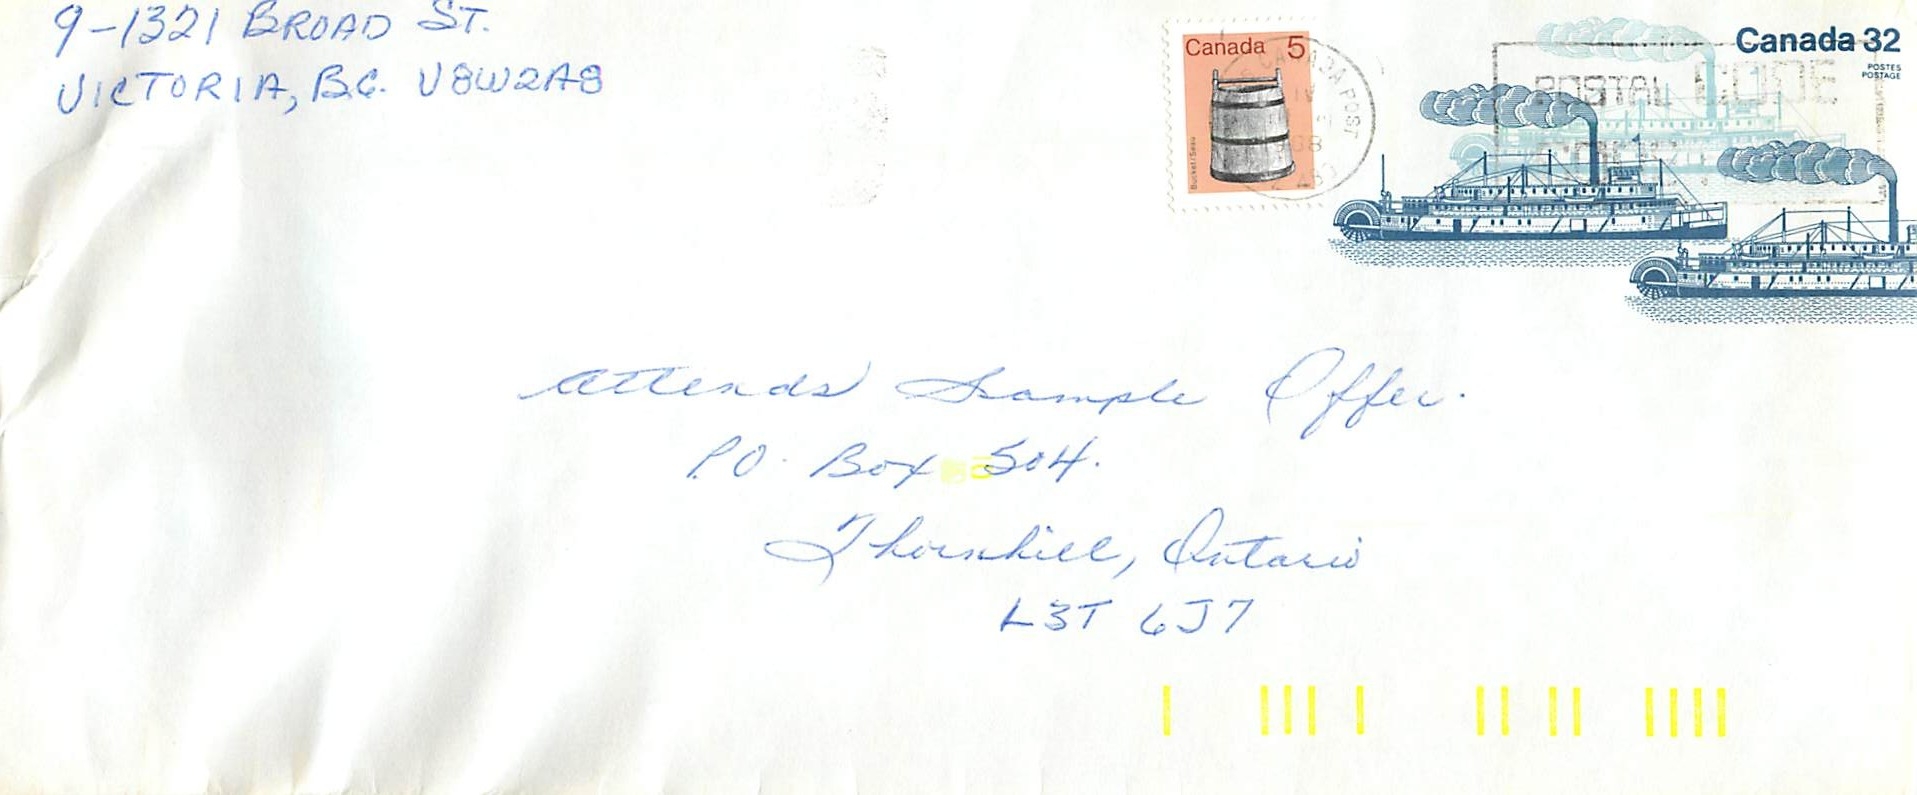 9-1321 BROAD ST.
VICTORIA, B.C. V8W2A8
Canada 5
Bucket/Seau
CANADA POST
Canada 32
POSTES
POSTAGE
POSTAL CODE
Attends Sample Offer.
P.O. Box 504.
Thornhill, Ontario
L3T 6J7